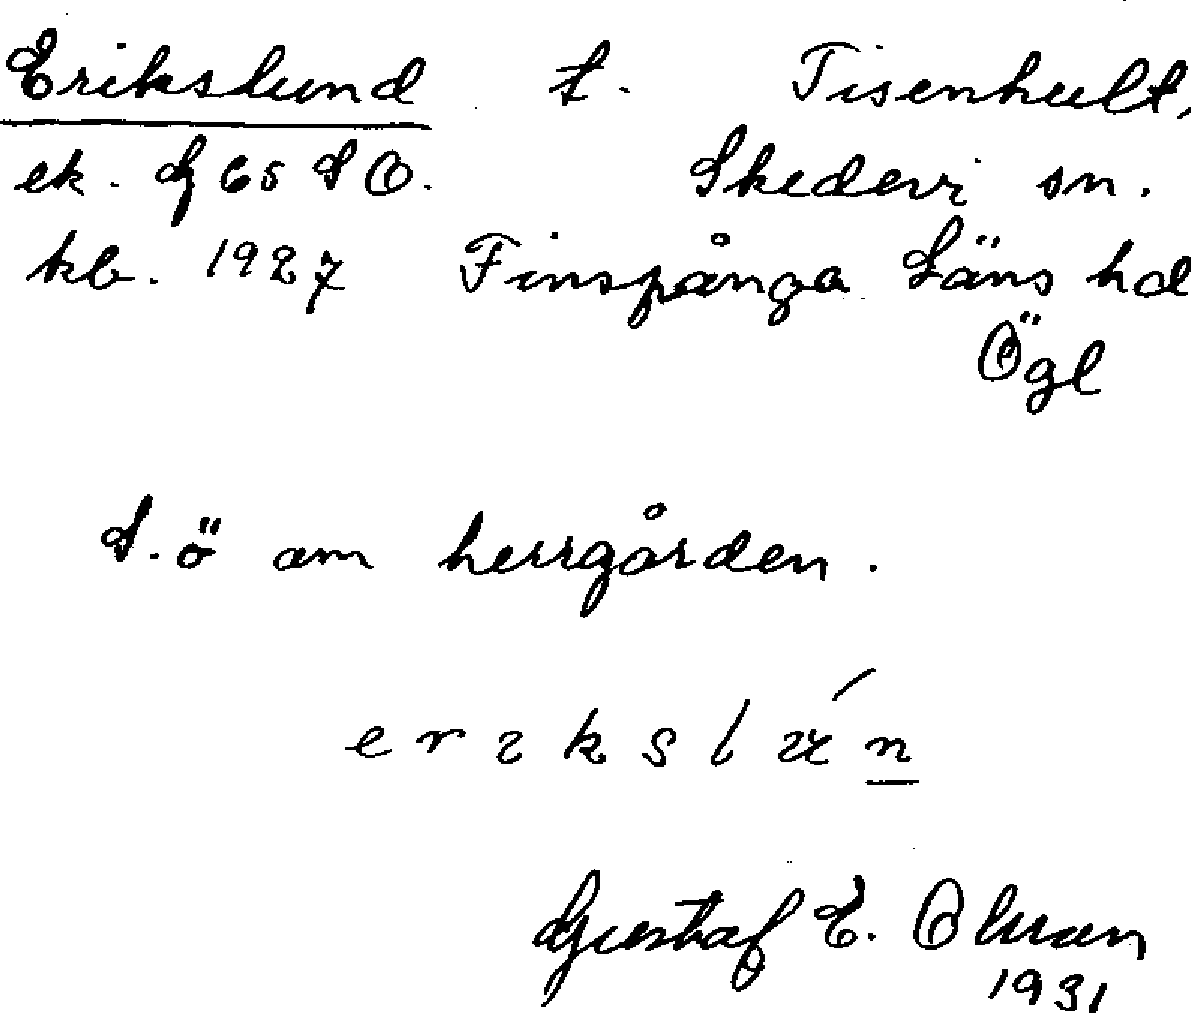 Erikslund t. Tisenhult,
ek. G 65 S O. Skedevi sn.
kb. 1927 Finspånga Läns hd
Ögl
S. ö am herrgården.
e r ı k s l ú n
Gustaf E. Ohman
1931